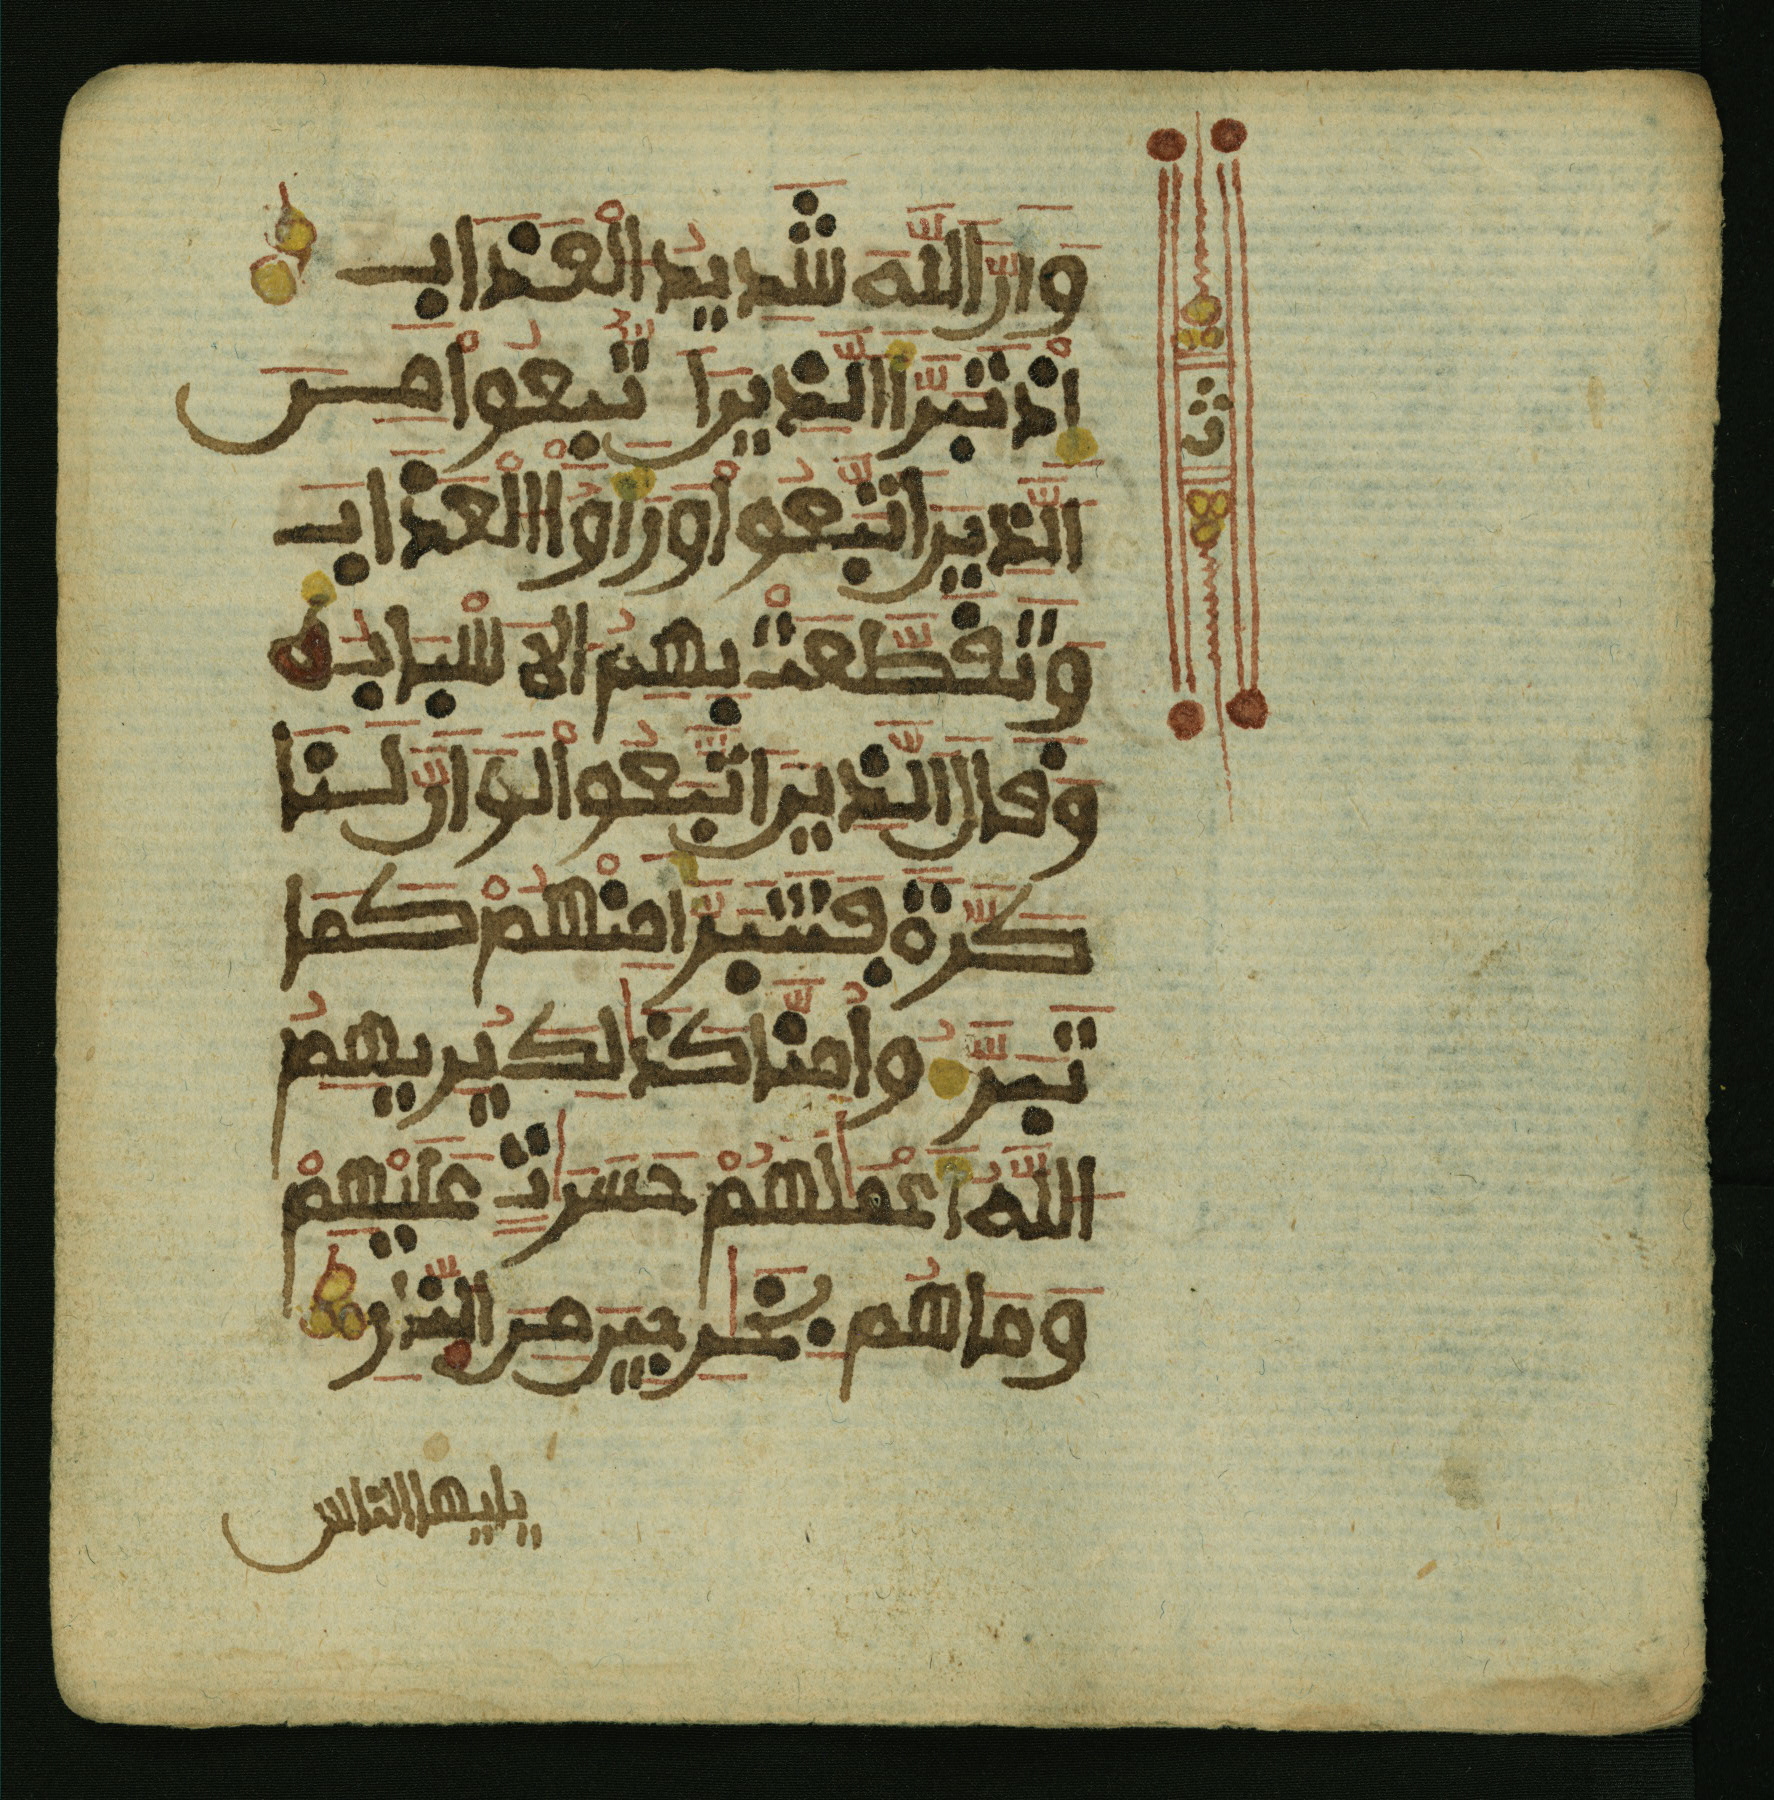 وَأَنَّ اللَّهَ شَدِيدُ الْعَذَابِ
إِذْ تَبَرَّأَ الَّذِينَ اتُّبِعُواْ مِنَ
الَّذِينَ اتَّبَعُواْ وَرَأَوُاْ الْعَذَابَ
وَتَقَطَّعَتْ بِهِمُ الَاسْبَابُ
وَقَالَ الَّذِينَ اتَّبَعُواْ لَوَ اَنَّ لَنَا
كَرَّةً فَنَتَبَرَّأَ مِنْهُمْ كَمَا
تَبَرَّءُواْ مِنَّا كَذَٰلِكَ يُرِيهِمُ
اللَّهُ أَعْمَٰلَهُمْ حَسَرَٰتٍ عَلَيْهِمْ
وَمَا هُم بِخَٰرِجِينَ مِنَ النَّارِ
يايها الناس
ث